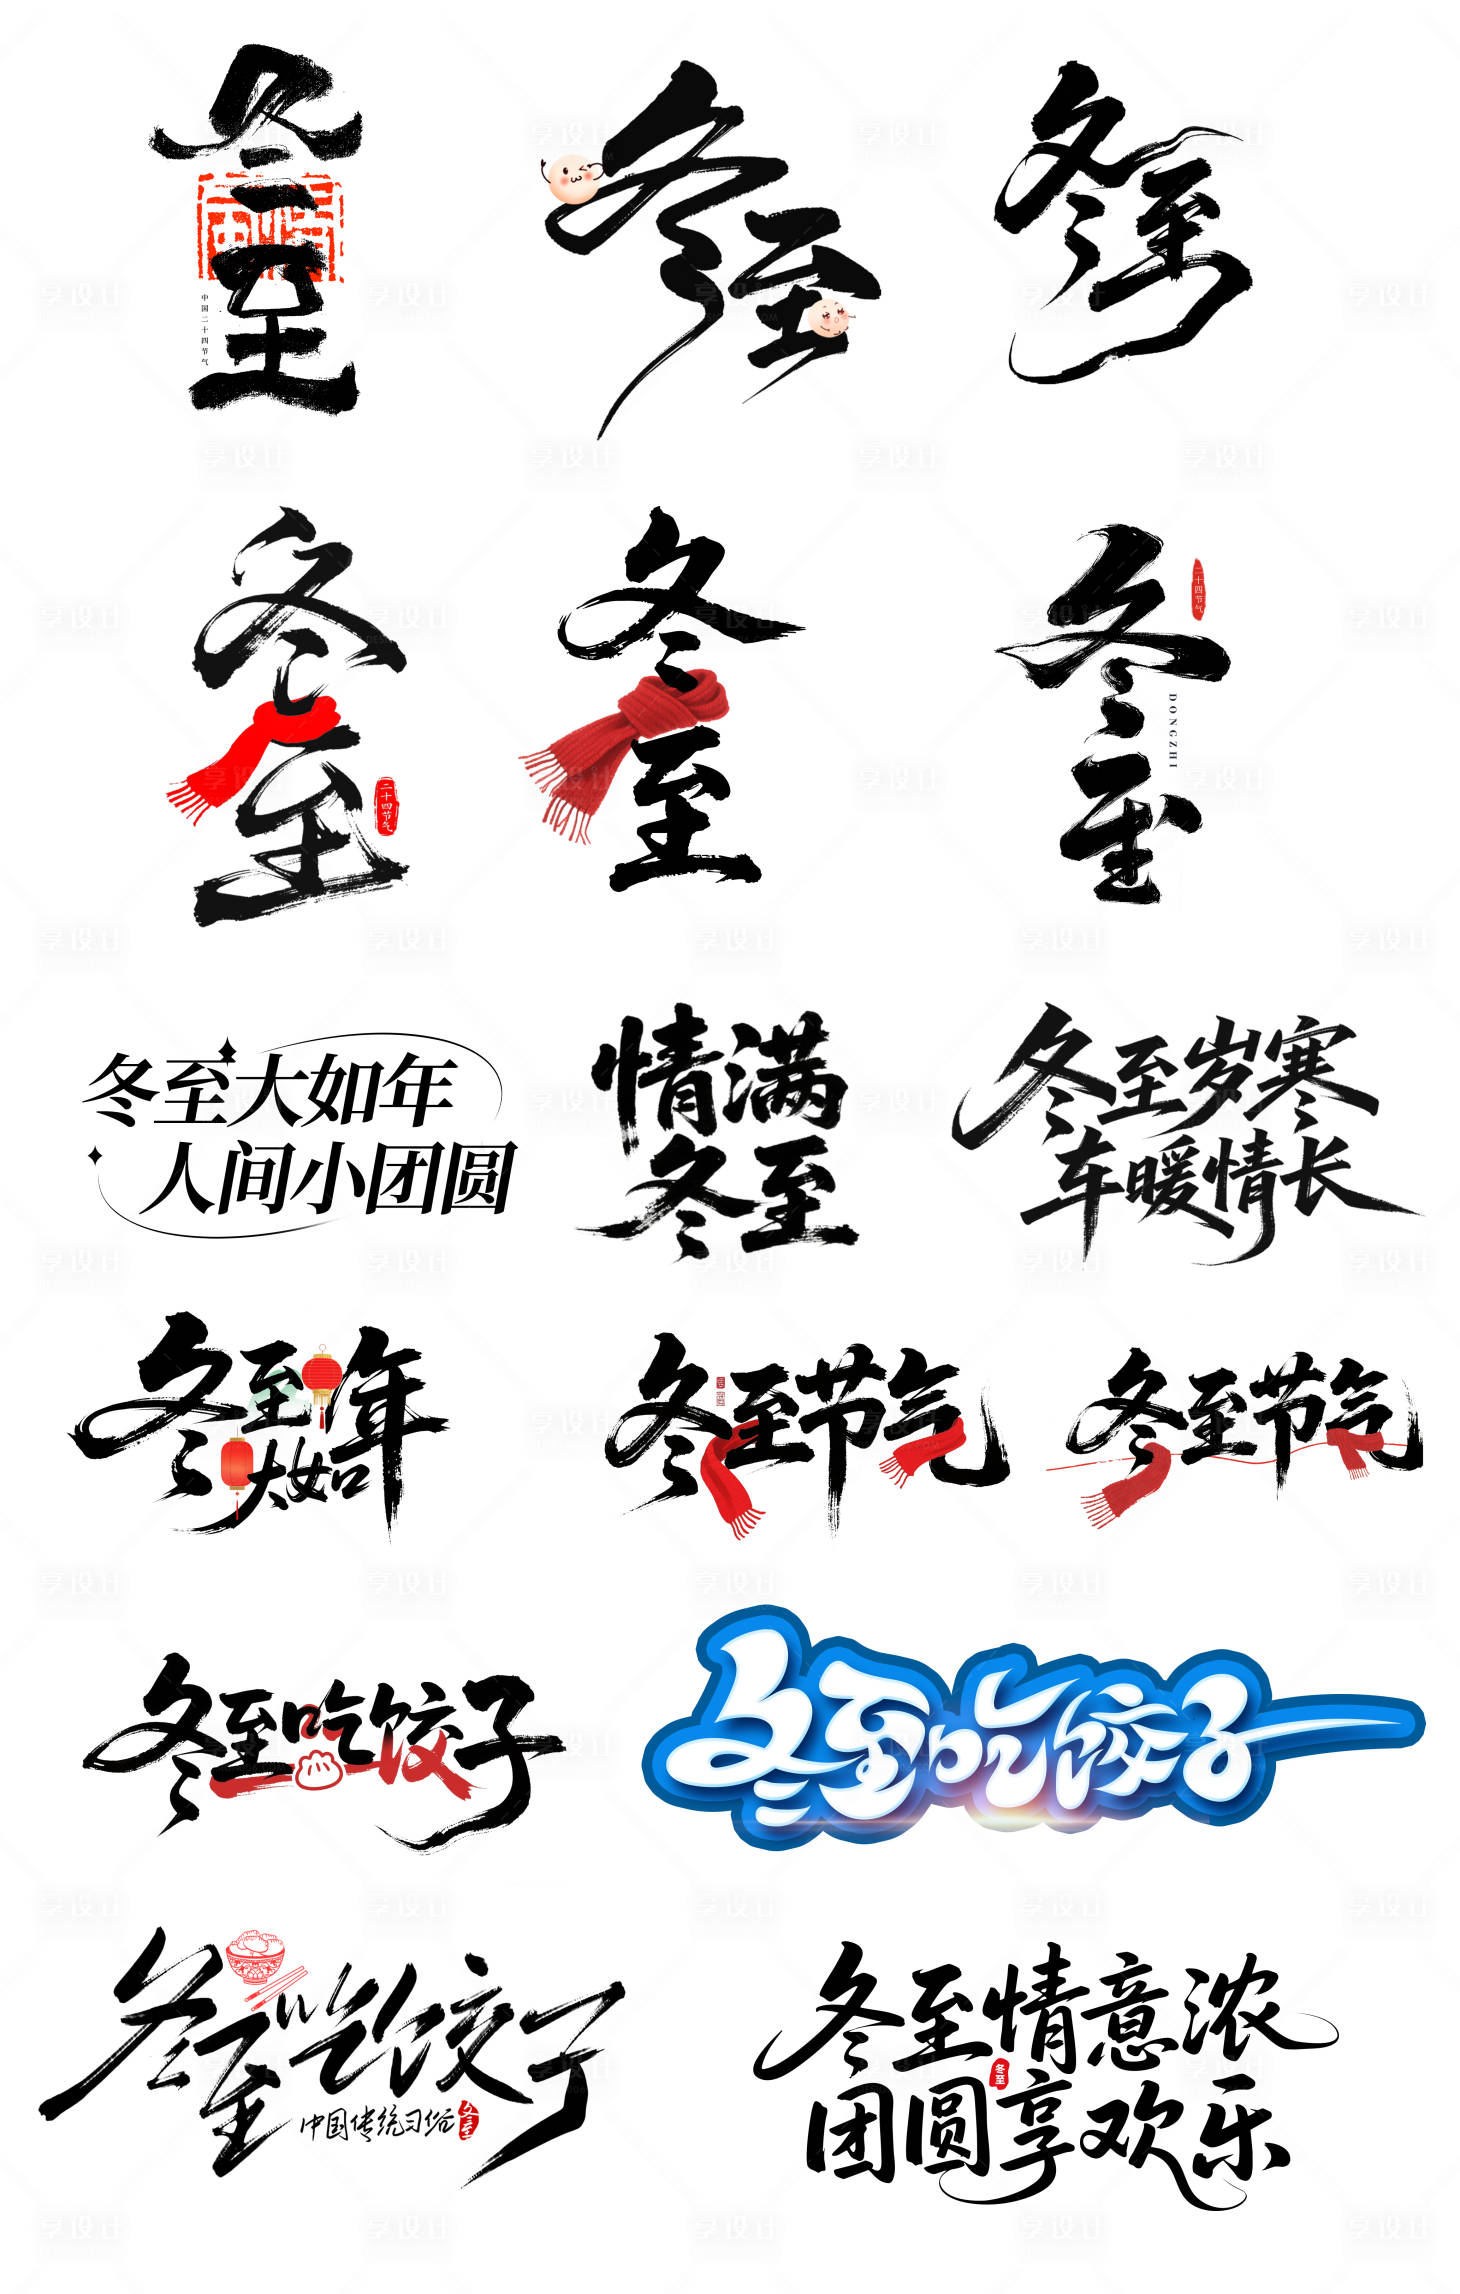 冬至
中国二十四节气
冬至
冬至
冬至
二十四节气
冬至
冬至
二十四节气
DONGZHI
冬至大如年
人间小团圆
情满
冬至
冬至岁寒
车暖情长
冬至
大如年
冬至节气
冬至节气
冬至吃饺子
冬至吃饺子
冬至吃饺子
中国传统习俗
冬至
冬至情意浓
冬至
团圆享欢乐
享设计